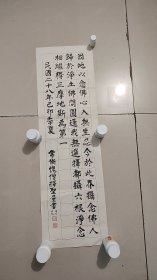 因地以念佛心入無生忍今於此界攝念佛人
歸於淨土佛問圓通我無選擇都攝六根淨念
相繼得三摩地斯為第一
民國二十八年己卯季夏
常慚愧僧釋聖量書